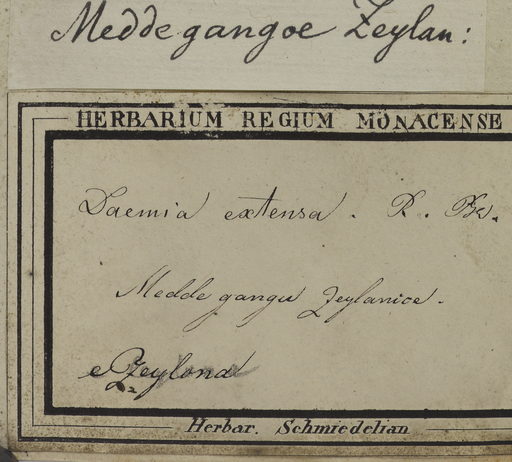 Meddegangoe Zeylan:
HERBARIUM REGIUM MONACENSE
Daemia extensa. R. Br.
Meddegangu Zeylanice.
e Zeylona
Herbar. Schmiedelian